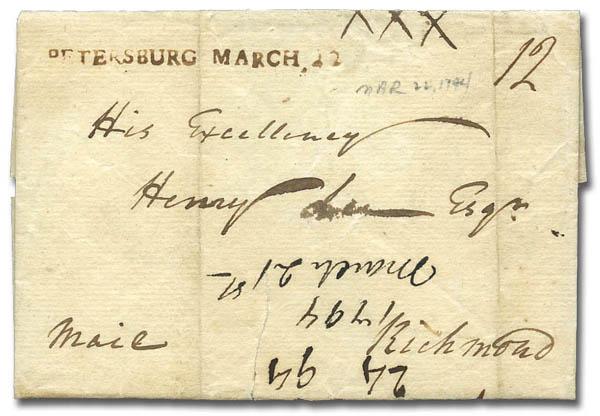 XXX
PETERSBURG MARCH, 22
12
MAR 22, 1794
His Excellency
Henry Lee Esqr
March 21st
1794
Mail
Richmond
24 94